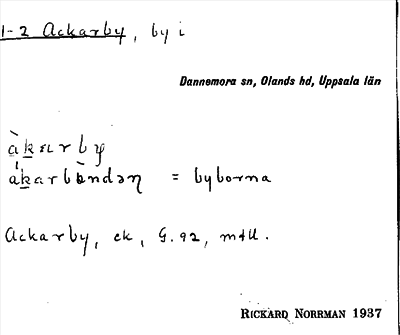 1-2 Ackarby, by i
Dannemora sn, Olands hd, Uppsala län
àkarby
ákarbòndən = byborna
Ackarby, ek, G.92, mtU.
RICKARD NORRMAN 1937